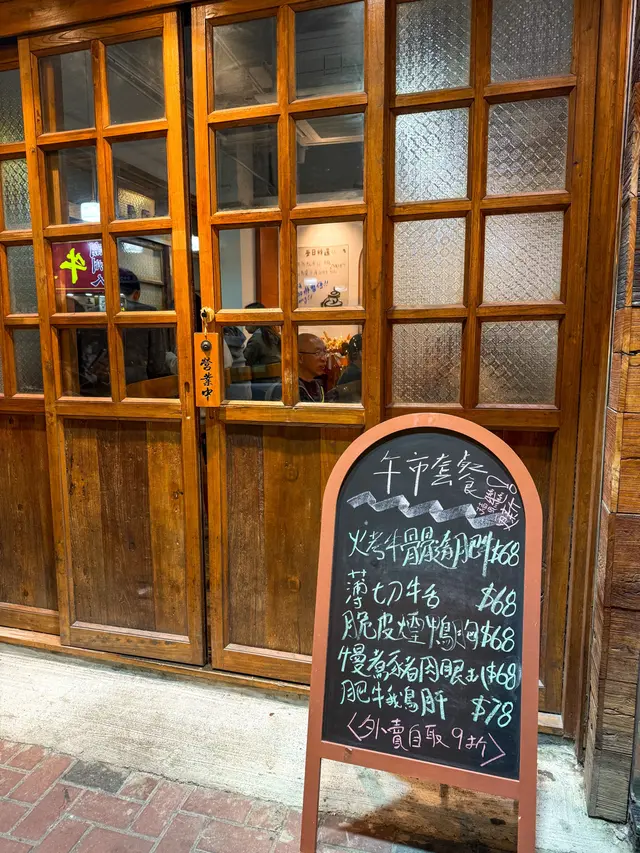 牛
營業中
午市套餐
火考牛骨髓邊肥牛$68
薄切牛舌 $68
脆皮煙鴨胸$68
慢煮豬肉眼 $68
肥牛鵝肝 $78
<外賣自取9折>